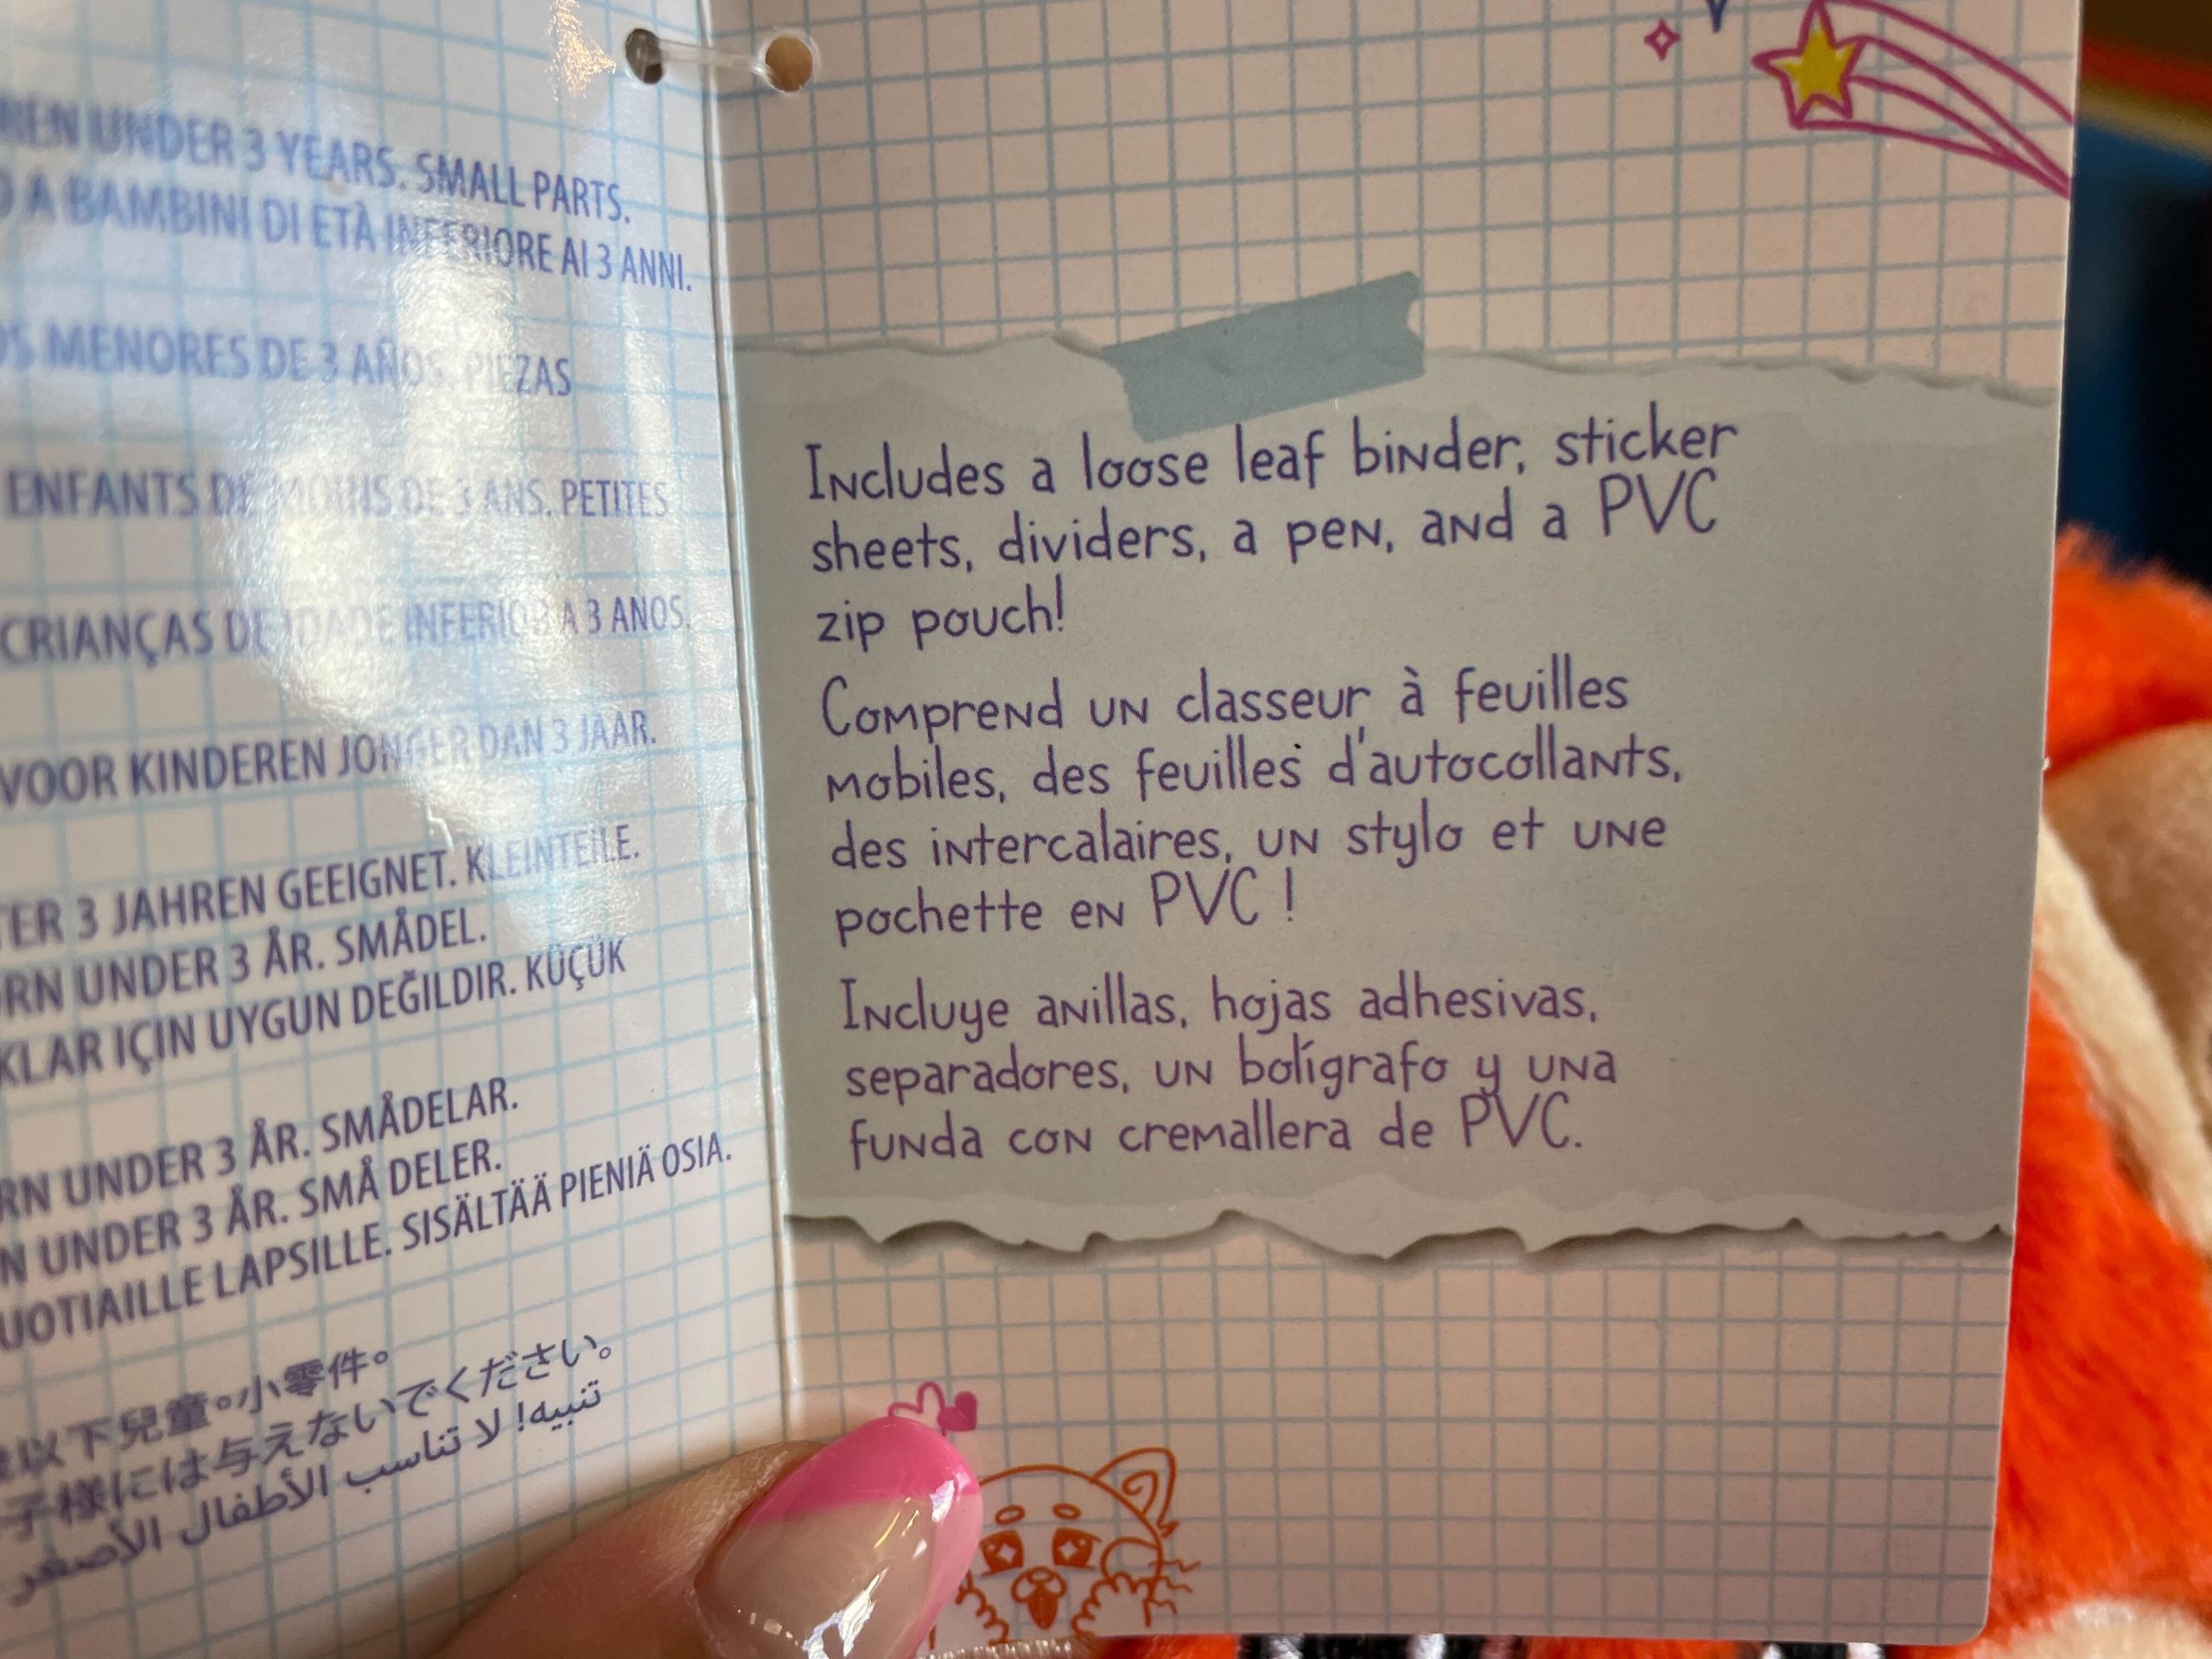 UNDER 3 YEARS. SMALL PARTS.
A BAMBINI DI ETÀ INFERIORE AI 3 ANNI.
MENORES DE 3 AÑOS. PIEZAS
ENFANTS DE MOINS DE 3 ANS. PETITES
CRIANÇAS DE IDADE INFERIOR A 3 ANOS.
VOOR KINDEREN JONGER DAN 3 JAAR.
3 JAHREN GEEIGNET. KLEINTEILE.
UNDER 3 ÅR. SMÅDEL.
IÇIN UYGUN DEĞILDIR. KÜÇÜK
UNDER 3 ÅR. SMÅDELAR.
UNDER 3 ÅR. SMÅ DELER.
LAPSILLE. SISÄLTÄÄ PIENIÄ OSIA.
以下兒童。小零件。
子様には与えないでください。
تنبيه! لا تناسب الأطفال الأصغر
Includes a loose leaf binder, sticker
sheets, dividers, a pen, and a PVC
zip pouch!
Comprend un classeur à feuilles
mobiles, des feuilles d'autocollants,
des intercalaires, un stylo et une
pochette en PVC !
Incluye anillas, hojas adhesivas,
separadores, un bolígrafo y una
funda con cremallera de PVC.